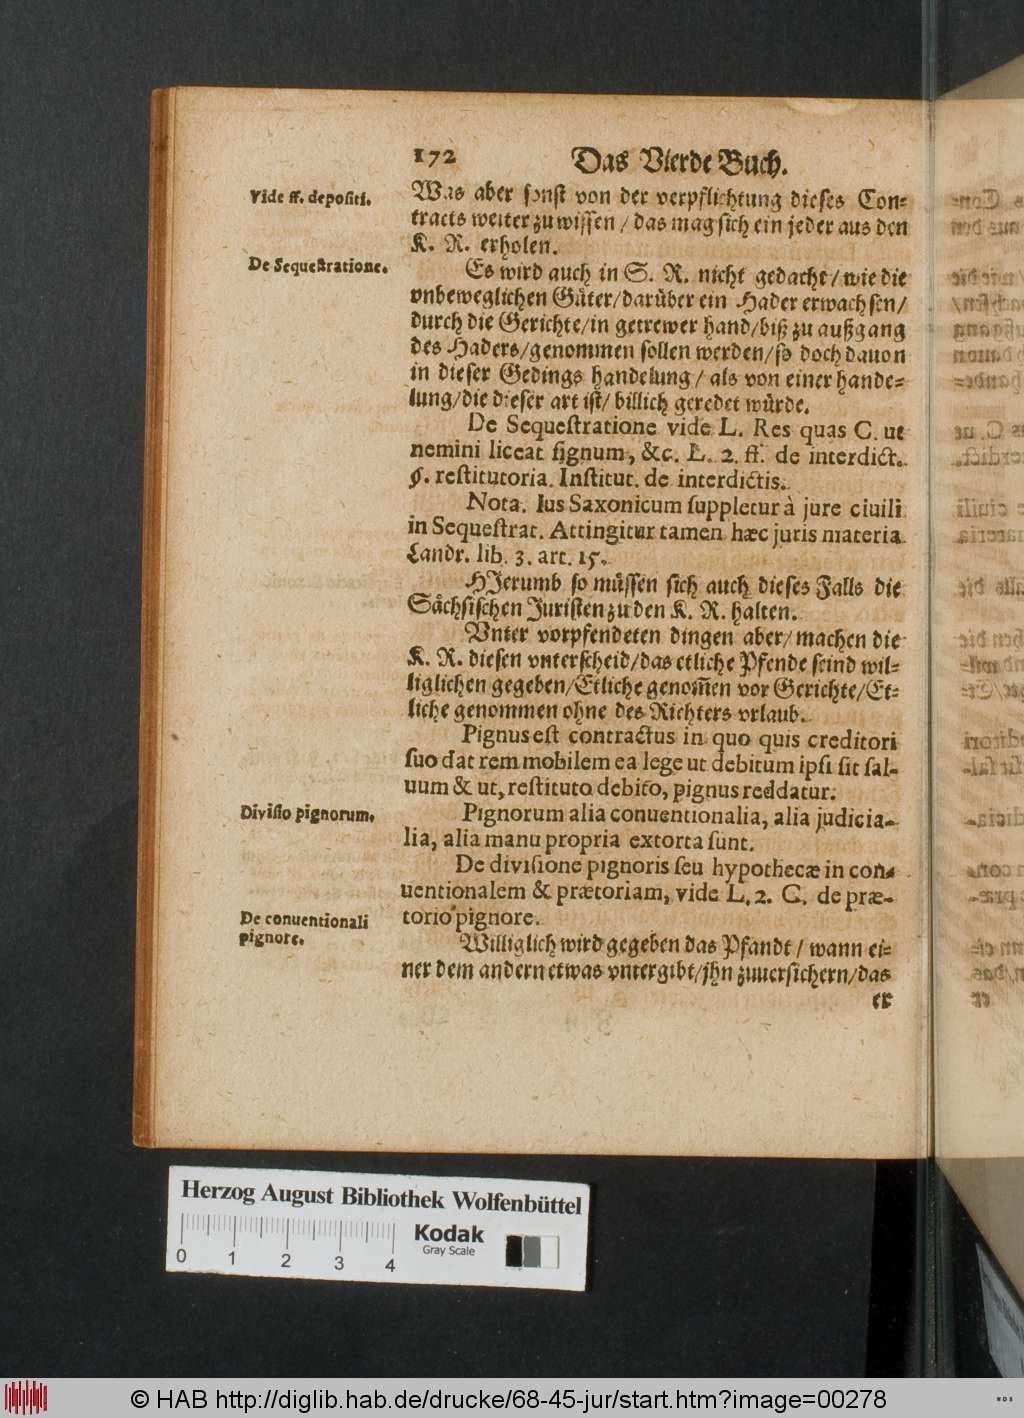 172
Das Vierde Buch.
Vide ff. depositi.
Was aber sonst von der verpflichtung dieses Con⸗
tracts weiter zu wissen / das mag sich ein jeder aus den
K. R. erholen.
De Sequestratione.
Es wird auch in S. R. nicht gedacht / wie die
vnbeweglichen Güter/darüber ein Hader erwachsen/
durch die Gerichte/in getrewer hand/biß zu außgang
des Haders/genommen sollen werden/so doch dauon
in dieser Gedings handelung / als von einer hande⸗
lung/die dieser art ist/ billich geredet würde.
De Sequestratione vide L. Res quas C. ut
nemini liceat signum, &c. L. 2. ff. de interdict.
§. restitutoria. Institut. de interdictis.
Nota. Ius Saxonicum suppletur à jure ciuili
in Sequestrat. Attingitur tamen hæc juris materia
Landr. lib. 3. art. 15.
HJerumb so müssen sich auch dieses Falls die
Sächsischen Juristen zu den K. R. halten.
Vnter vorpfendeten dingen aber/ machen die
K. R. diesen vnterscheid/das etliche Pfende seind wil⸗
liglichen gegeben/Etliche genom̃en vor Gerichte/Et⸗
liche genommen ohne des Richters vrlaub.
Pignus est contractus in quo quis creditori
suo dat rem mobilem ea lege ut debitum ipsi sit sal-
uum & ut, restituto debito, pignus reddatur.
Divisio pignorum.
Pignorum alia conuentionalia, alia judicia-
lia, alia manu propria extorta sunt.
De divisione pignoris seu hypothecæ in con-
uentionalem & prætoriam, vide L. 2. C. de præ-
torio pignore.
De conuentionali
pignore.
Williglich wird gegeben das Pfandt / wann ei⸗
ner dem andern etwas vntergibt/jhn zuuersichern/das
er
Herzog August Bibliothek Wolfenbüttel
0 1 2 3 4
Kodak
Gray Scale
© HAB http://diglib.hab.de/drucke/68-45-jur/start.htm?image=00278